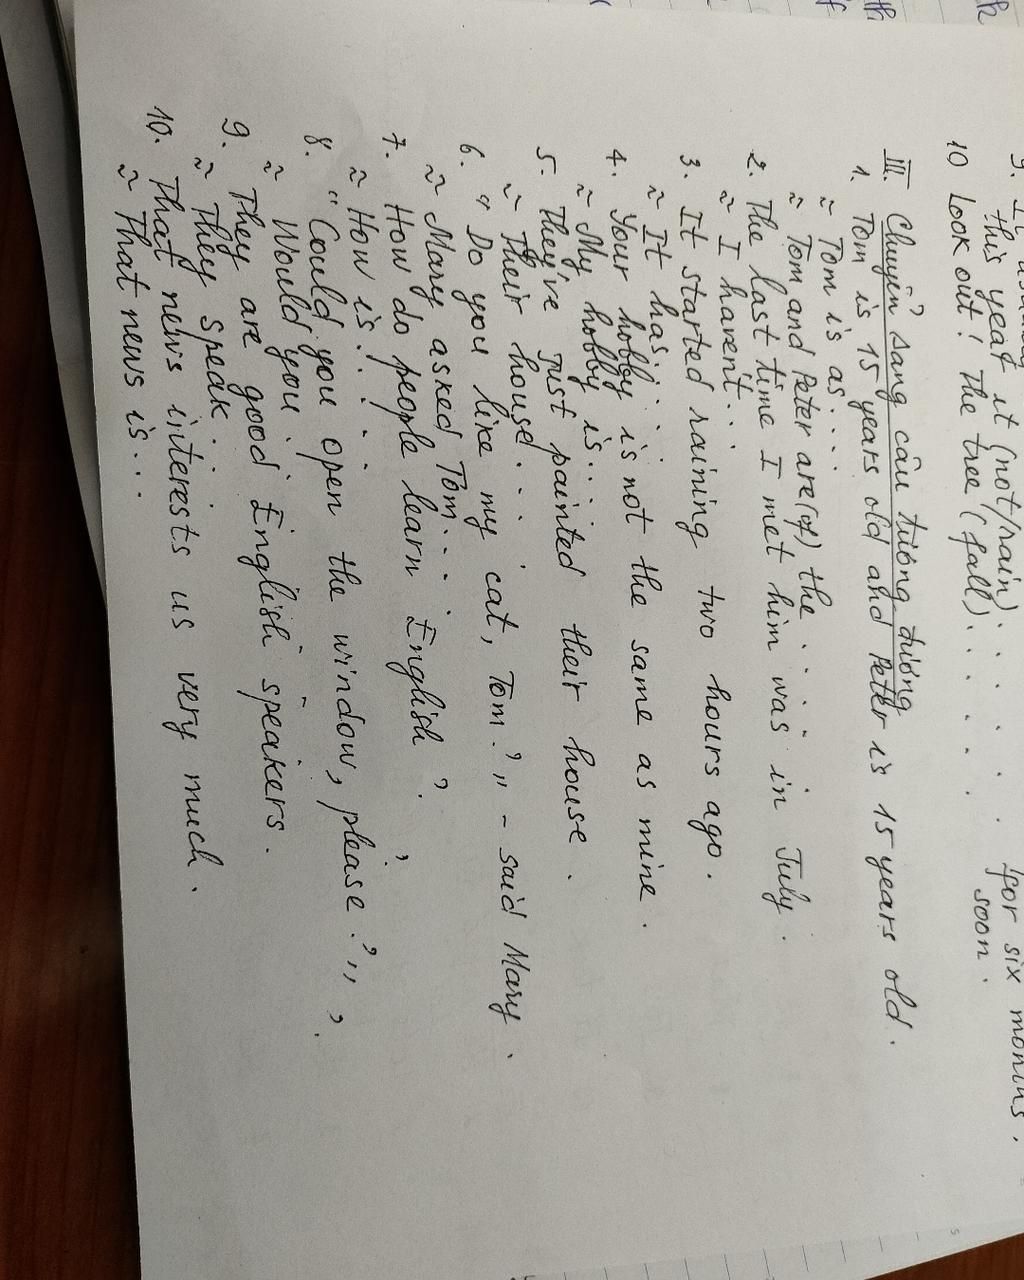 this year it (not/rain). . . . . for six months.
10 Look out! The tree (fall). . . . . soon.
III. Chuyển sang câu tương đương
1. Tom is 15 years old and Peter is 15 years old.
≈ Tom is as. . . .
≈ Tom and Peter are (of) the . . . .
2. The last time I met him was in July.
≈ I haven't. . .
3. It started raining two hours ago.
≈ It has. . . .
4. Your hobby is not the same as mine.
≈ My hobby is. . .
5. They've just painted their house.
≈ Their house. . . .
6. "Do you like my cat, Tom?" - said Mary.
≈ Mary asked Tom. . .
7. How do people learn English?
≈ How is. . . . ?
8. "Could you open the window, please?"
≈ Would you. . . . ?
9. They are good English speakers.
≈ They speak. . .
10. That news interests us very much.
≈ That news is. . .